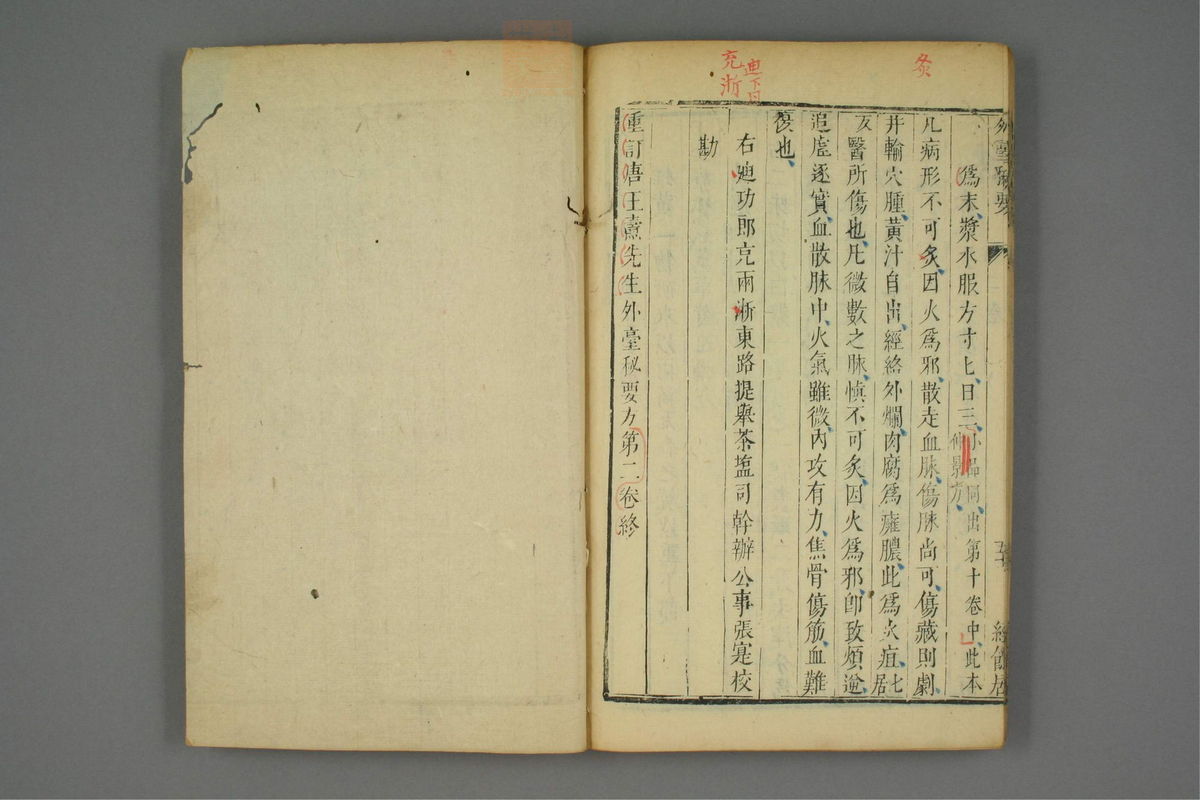 灸
迪下同
充浙
外臺秘要
經餘居
爲末漿水服方寸匕日三小品同出第十卷中此本
仲景方
凡病形不可灸因火爲邪散走血脉傷脉尚可傷藏則劇
井輸穴腫黃汁自出經絡外爛肉腐爲癰膿此爲火疽
醫所傷也凡微數之脉慎不可灸因火爲邪卽致煩逆
追虛逐實血散脉中火氣雖微内攻有力焦骨傷筋血難
復也
右廸功郎克兩浙東路提舉茶塩司幹辦公事張寔校
勘
重訂唐王燾先生外臺秘要方第二卷終